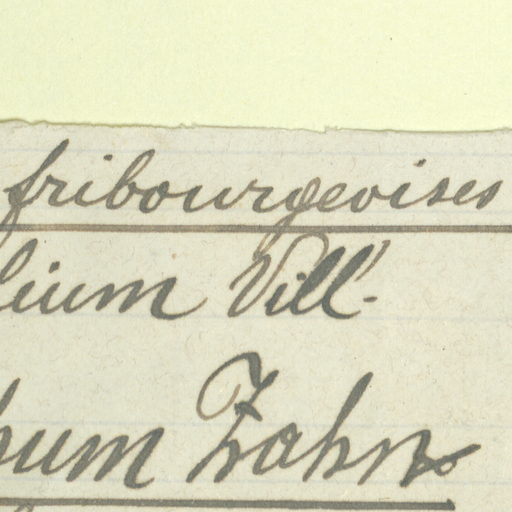 fribourgeoises
lium Vill.
hum Zahn